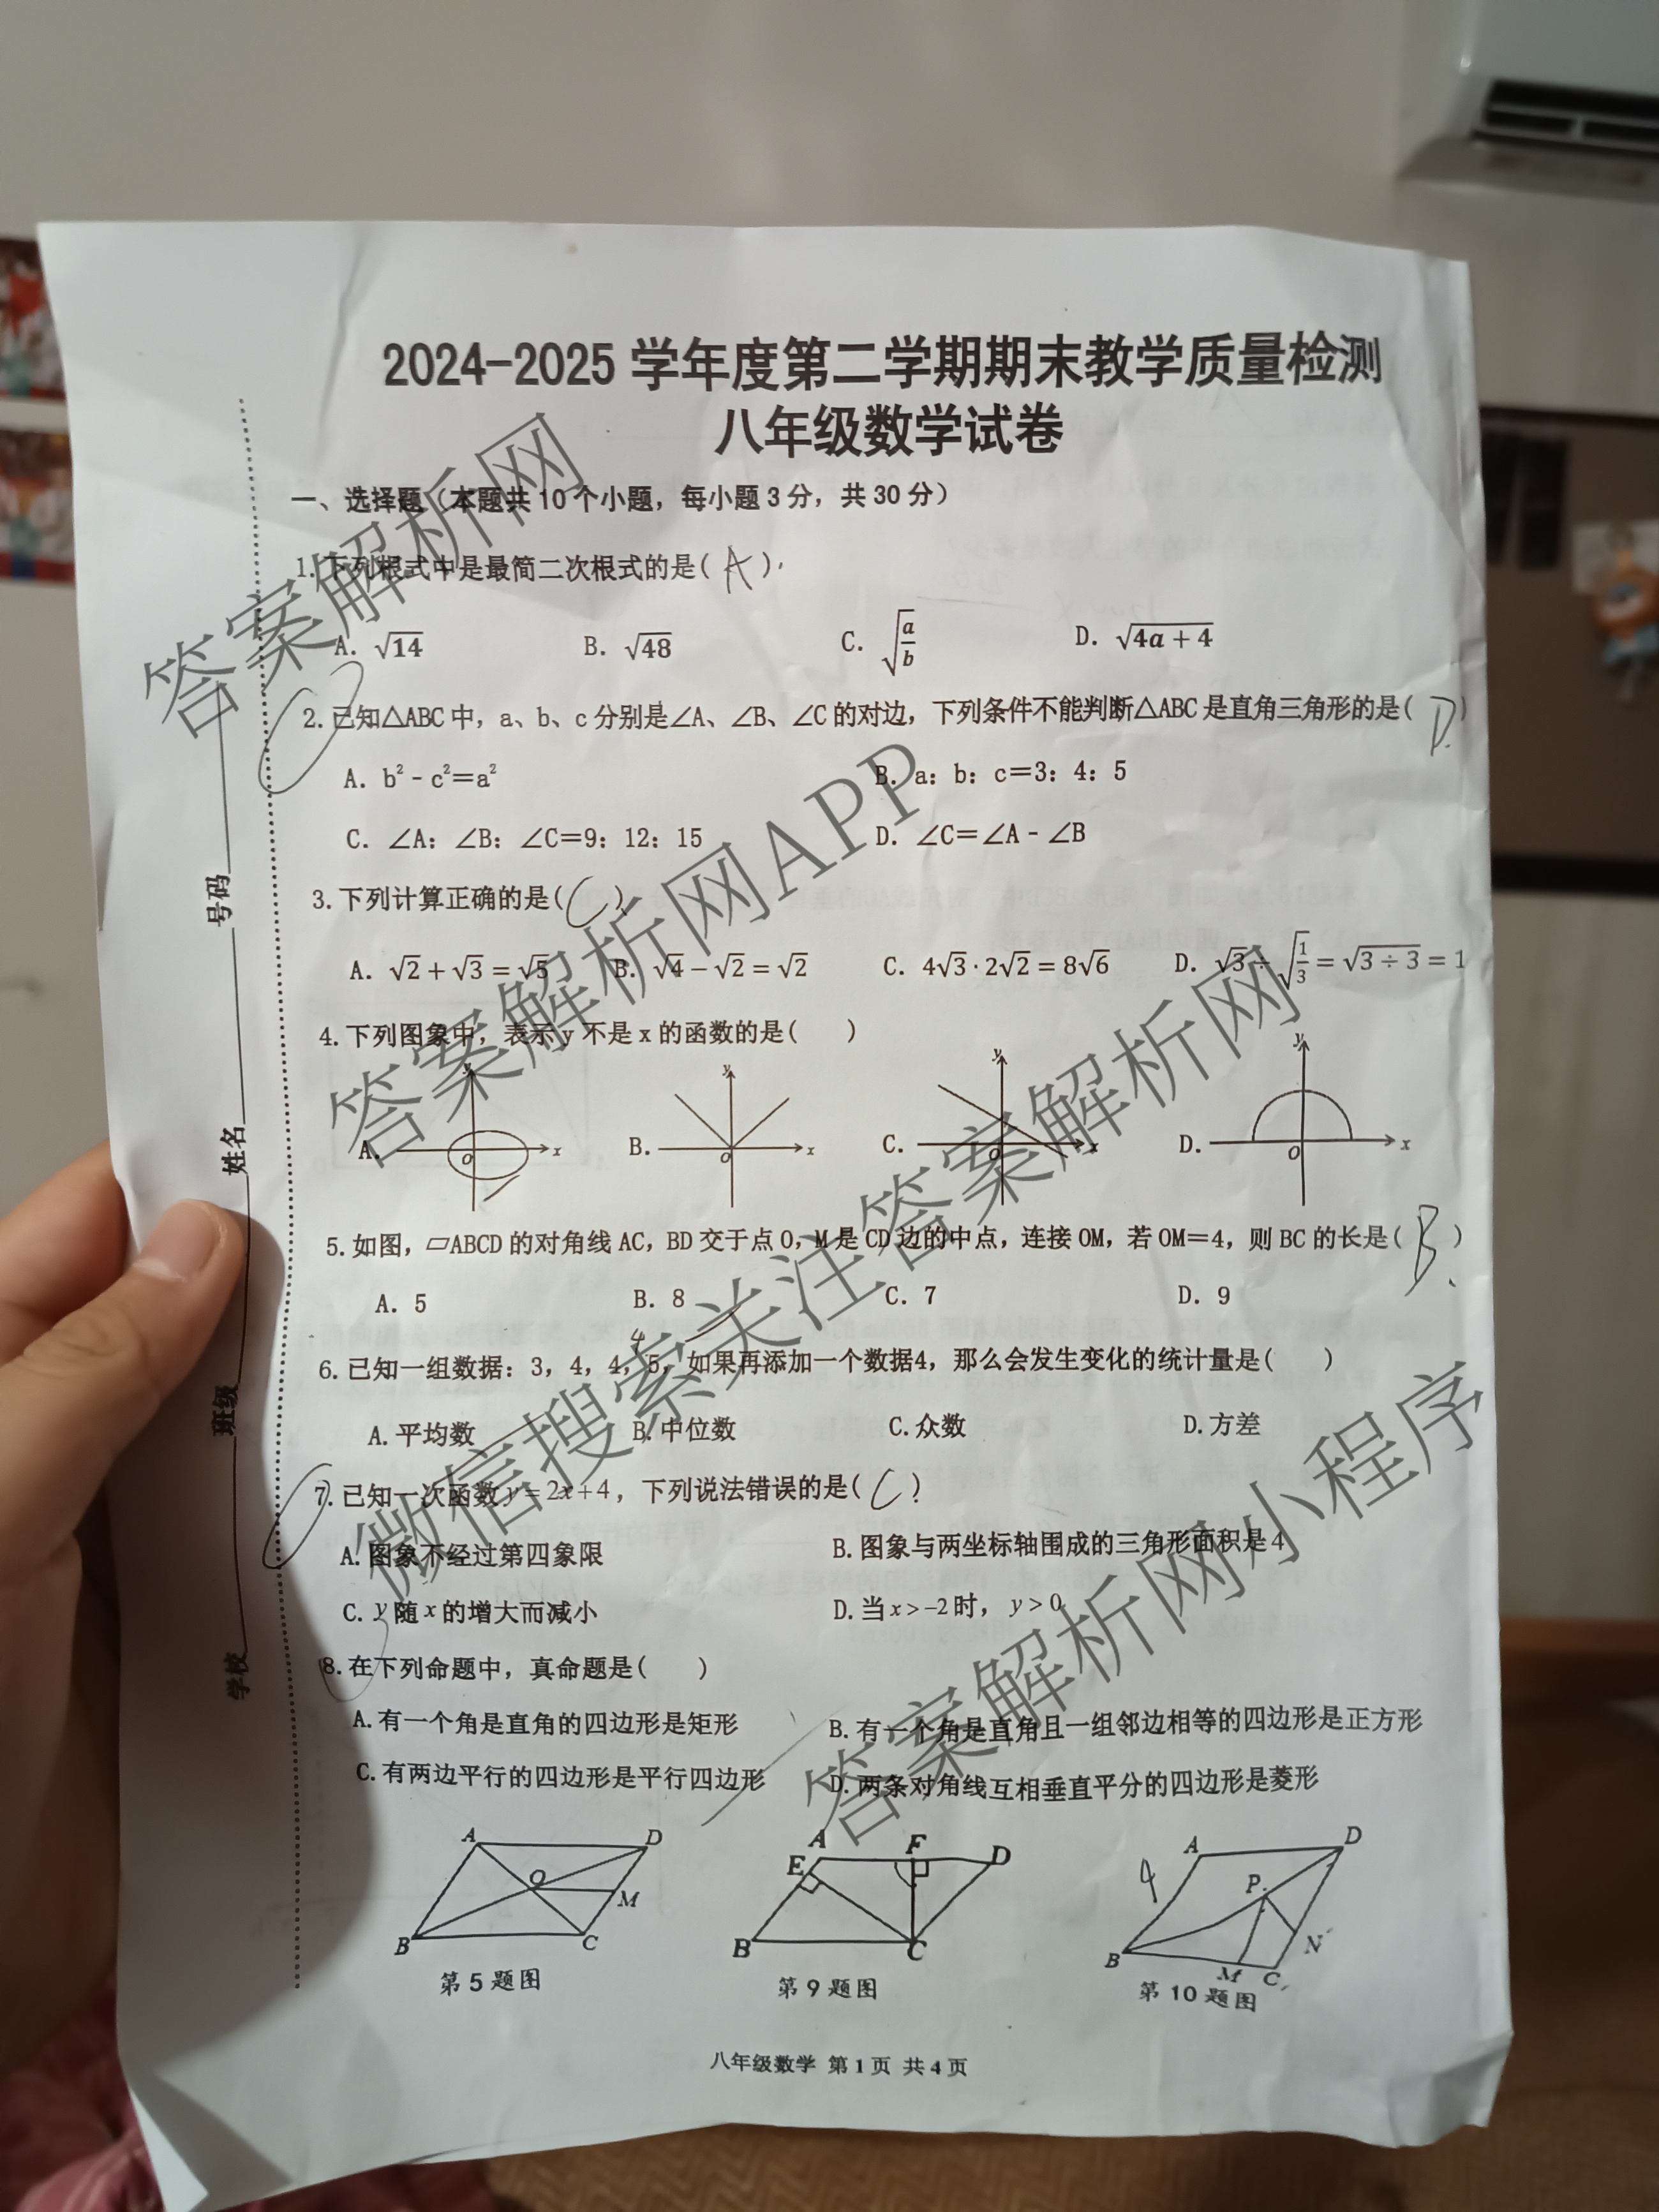 2024-2025 学年度第二学期期末教学质量检测
八年级数学试卷
一、选择题（本题共 10 个小题，每小题 3 分，共 30 分）
1.下列根式中是最简二次根式的是( A ).
A. √14 B. √48 C. √(a/b) D. √(4a + 4)
2.已知△ABC 中，a、b、c 分别是∠A、∠B、∠C 的对边，下列条件不能判断△ABC 是直角三角形的是( D. )
A. b²﹣c²＝a² B. a：b：c＝3：4：5
C. ∠A：∠B：∠C＝9：12：15 D. ∠C＝∠A﹣∠B
3.下列计算正确的是( C )
A. √2 + √3 = √5 B. √4 − √2 = √2 C. 4√3 · 2√2 = 8√6 D. √3 ÷ √(1/3) = √(3 ÷ 3) = 1
4.下列图象中，表示 y 不是 x 的函数的是( )
A. y O x B. y O x C. y O x D. y O x
5.如图，▱ABCD 的对角线 AC，BD 交于点 O，M 是 CD 边的中点，连接 OM，若 OM＝4，则 BC 的长是( B. )
A. 5 B. 8 C. 7 D. 9
4
6.已知一组数据：3，4，4，5，如果再添加一个数据4，那么会发生变化的统计量是( )
A.平均数 B.中位数 C.众数 D.方差
7.已知一次函数 y = 2x+4，下列说法错误的是( C )
A.图象不经过第四象限 B.图象与两坐标轴围成的三角形面积是 4
C. y 随 x 的增大而减小 D.当 x > −2 时， y > 0
8.在下列命题中，真命题是( )
A.有一个角是直角的四边形是矩形 B.有一个角是直角且一组邻边相等的四边形是正方形
C.有两边平行的四边形是平行四边形 D.两条对角线互相垂直平分的四边形是菱形
A D O M B C
第 5 题图
A F D E B C
第 9 题图
4 A D P N B M C
第 10 题图
八年级数学 第 1 页 共 4 页
学校 班级 姓名 号码
答案解析网
答案解析网APP
微信搜索关注答案解析网
答案解析网小程序